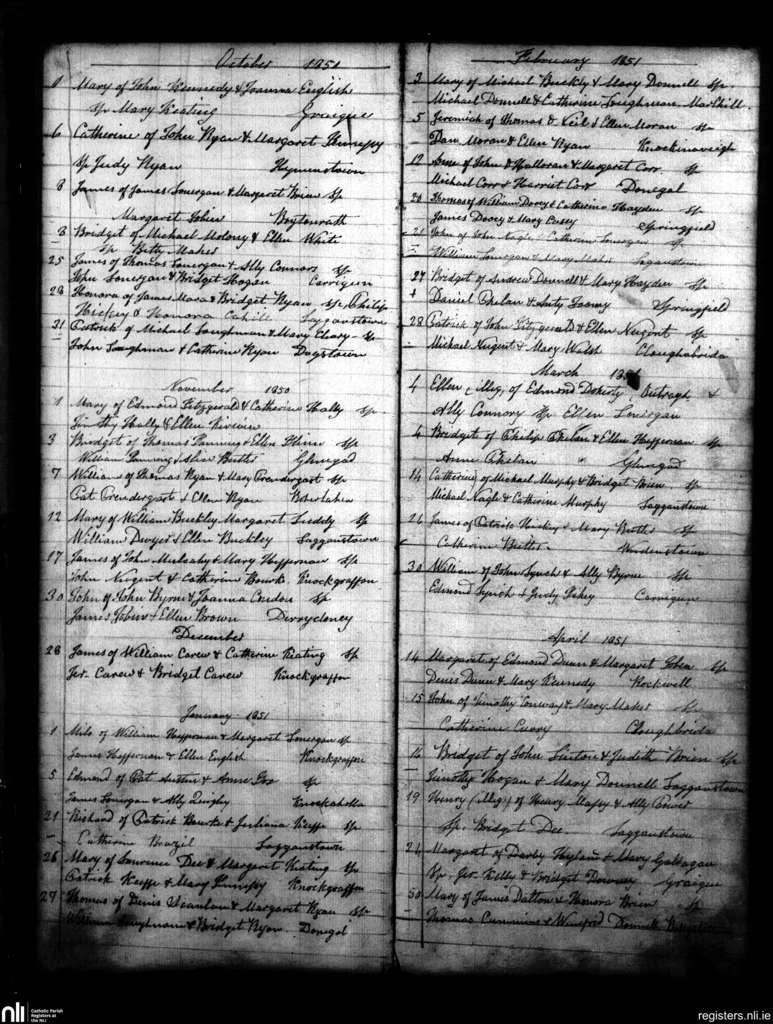 October 1851
9 Mary of John Kennedy & Joanna English
Sp Mary Keating Graigue
6 Catherine of John Ryan & Margaret
Sp Judy Ryan
8 James of James Lonergan & Margaret Brien Sp
Margaret Tobin Boytonrath
8 Bridget of Michael Molony & Ellen White
Sp Betty Maher
25 James of Thomas Lonergan & Ally Connors Sp
John Lonergan & Bridget Hogan Carrigeen
28 Honora of James Mara & Bridget Ryan Sp Philip
Hickey & Honora Cahill Logganstown
31 Patrick of Michael Loughman & Mary Sp
John Loughman & Catherine Ryan Dogstown
November 1850
1 Mary of Edmond Fitzgerald & Catherine Hally Sp
Timothy Hally & Ellen
3 Bridget of Thomas & Ellen Sp
William & Butler Glengad
7 William of Thomas Ryan & Mary Prendergast Sp
Pat Prendergast & Ellen Ryan
12 Mary of William Buckley Margaret Liddy Sp
William Dwyer & Ellen Buckley Logganstown
17 James of John Mulcahy & Mary Heffernan Sp
John Nugent & Catherine Bourke Knockgraffon
30 John of John Byrne & Joanna Sp
James Tobin & Ellen Brown Derrycloney
December
28 James of William Carew & Catherine Keating Sp
Jer. Carew & Bridget Carew Knockgraffon
January 1851
1 Milo of William Heffernan & Margaret Lonergan Sp
James Heffernan & Ellen English Knockgraffon
5 Edmond of Pat & Anne Sp
James Lonergan & Ally Quigley
21 Richard of Patrick Bourke & Juliana Keeffe Sp
Catherine Brazil Logganstown
26 Mary of Laurence Dee & Margaret Keating Sp
Patrick Keeffe & Mary Knockgraffon
27 Thomas of Denis Scanlan & Margaret Ryan Sp
William Loughman & Bridget Ryan Donegal
February 1851
3 Mary of Michael Buckly & Mary Donnell Sp
Michael Donnell & Catherine Loughman
5 Jeremiah of Thomas & Ellen Moran Sp
Dan Moran & Ellen Ryan Knockinaveigh
12 Anne of John O Halloran & Margaret Corr Sp
Michael Corr & Harriet Corr Donegal
20 Thomas of William Davey & Catherine Hayden Sp
James Davey & Mary Casey Springfield
21 John of John Nagle Catherine Lonergan Sp
William Lonergan & Mary Maher Loganstown
27 Bridget of Andrew Donnell & Mary Hayden Sp
Daniel Phelan & Springfield
28 Patrick of John Fitzgerald & Ellen Nugent Sp
Michael Nugent & Mary Walsh Cloughabrida
March 1851
4 Ellen (illig) of Edmond Doherty &
Ally Connors Sp Ellen Lonergan
4 Bridget of Philip Phelan & Ellen Heffernan Sp
Anne Phelan Glengad
14 Catherine of Michael Murphy & Bridget Brien Sp
Michael Nagle & Catherine Murphy Logganstown
26 James of Patrick Hickey & Mary Butler Sp
Catherine Butler
30 William of John Lynch & Ally Byrne Sp
Edmond Lynch & Judy Carrigeen
April 1851
14 Margaret of Edmond Dunn & Margaret Shea Sp
Denis Dunn & Mary Kennedy Rockwell
15 John of Timothy Conway & Mary Maher Sp
Catherine Curry Cloughbrida
16 Bridget of John & Judith Brien Sp
Timothy Hogan & Mary Donnell Logganstown
19 Henry (illig) of Henry Massy & Ally Power
Sp. Bridget Dee Logganstown
24 Margaret of Darby Hyland & Mary Gallagan
Sp. Jer Kelly & Bridget Downey Graigue
30 Mary of James Dalton & Honora Brien Sp
Thomas Cummins & Winefred Donnell
nli
Catholic Parish
Registers at
the NLI
registers.nli.ie